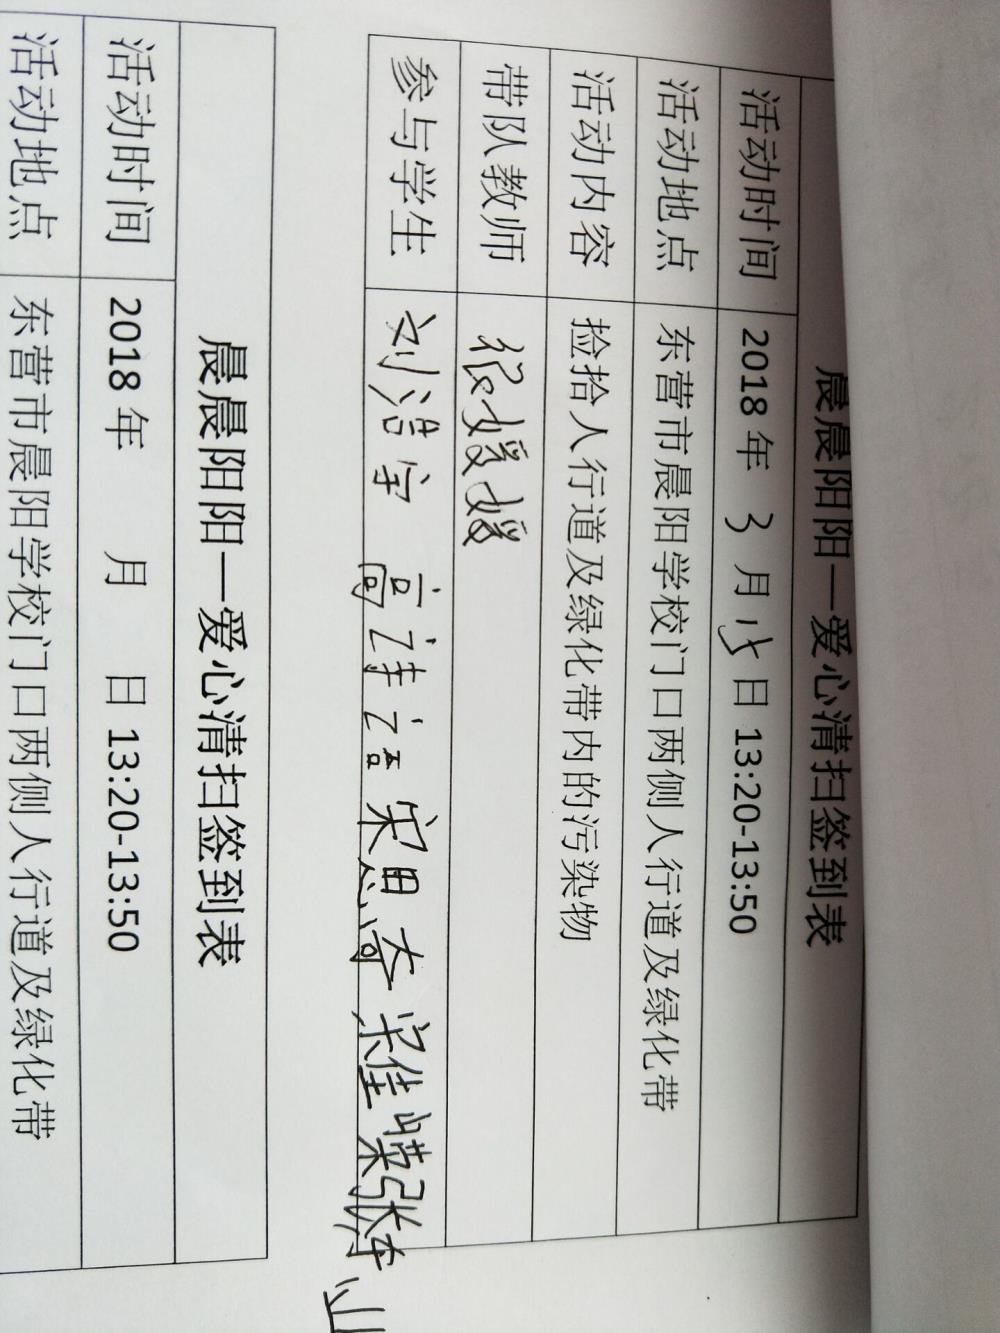 晨晨阳阳—爱心清扫签到表
活动时间 2018年 3 月 15 日 13:20-13:50
活动地点 东营市晨阳学校门口两侧人行道及绿化带
活动内容 捡拾人行道及绿化带内的污染物
带队教师 媛媛
参与学生 刘浩宇 高诗语 宋思奇 宋佳嵘
晨晨阳阳—爱心清扫签到表
活动时间 2018年 月 日 13:20-13:50
活动地点 东营市晨阳学校门口两侧人行道及绿化带